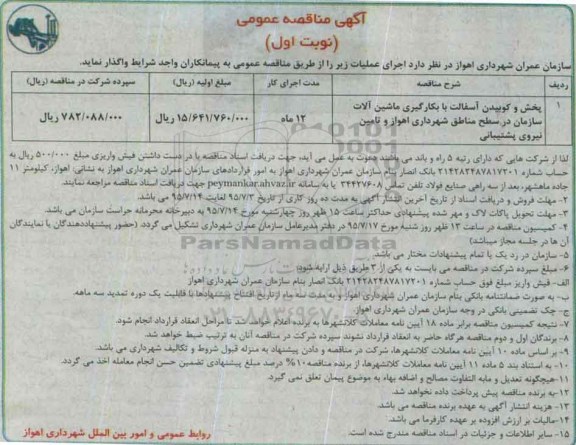 آگهی مناقصه عمومی
(نوبت اول)
سازمان عمران شهرداری اهواز در نظر دارد اجرای عملیات زیر را از طریق مناقصه عمومی به پیمانکاران واجد شرایط واگذار نماید.
ردیف شرح مناقصه مدت اجرای کار مبلغ اولیه (ریال) سپرده شرکت در مناقصه (ریال)
۱ پخش و کوبیدن آسفالت با بکارگیری ماشین آلات سازمان در سطح مناطق شهرداری اهواز و تامین نیروی پشتیبانی ۱۲ ماه ۱۵/۶۴۱/۷۶۰/۰۰۰ ریال ۷۸۲/۰۸۸/۰۰۰ ریال
لذا از شرکت هایی که دارای رتبه ۵ راه و باند می باشند دعوت به عمل می آید، جهت دریافت اسناد مناقصه با در دست داشتن فیش واریزی مبلغ ۵۰۰/۰۰۰ ریال به
حساب شماره ۲۱۴۲۸۲۴۸۷۸۱۷۲۰۱ بانک انصار بنام سازمان عمران شهرداری اهواز به امور قراردادهای سازمان عمران شهرداری اهواز به نشانی: اهواز، کیلومتر ۱۱
جاده ماهشهر، بعد از سه راهی صنایع فولاد تلفن تماس ۳۴۴۲۷۶۰۸ یا به سامانه peymankar.ahvaz.ir جهت دریافت اسناد مناقصه مراجعه نمایند.
۲- مهلت فروش و دریافت اسناد از تاریخ آخرین انتشار آگهی به مدت ده روز کاری از تاریخ ۹۵/۷/۳ لغایت ۹۵/۷/۱۴ می باشد.
۳- مهلت تحویل پاکات لاک و مهر شده پیشنهادی حداکثر ساعت ۱۵ ظهر روز چهارشنبه مورخ ۹۵/۷/۱۴ به دبیرخانه محرمانه حراست سازمان می باشد.
۴- کمیسیون مناقصه در ساعت ۱۳ ظهر روز شنبه مورخ ۹۵/۷/۱۷ در دفتر مدیرعامل سازمان عمران شهرداری تشکیل می گردد. (حضور پیشنهاددهندگان یا نمایندگان
آن ها در جلسه مجاز میباشد)
۵- سازمان در رد یک یا تمام پیشنهادات مختار می باشد.
۶- مبلغ سپرده شرکت در مناقصه می بایست به یکی از ۳ طریق ذیل ارایه شود:
الف- فیش واریز مبلغ فوق حساب شماره ۲۱۴۲۸۲۴۸۷۸۱۷۲۰۱ بانک انصار بنام سازمان عمران شهرداری اهواز
ب- به صورت ضمانتنامه بانکی بنام سازمان عمران شهرداری اهواز و به مدت سه ماه از تاریخ افتتاح پیشنهادها با قابلیت یک دوره تمدید سه ماهه.
ج- چک تضمینی بانکی در وجه سازمان عمران شهرداری اهواز
۷- نتیجه کمیسیون مناقصه برابر ماده ۱۸ آیین نامه معاملات کلانشهرها به برنده اعلام خواهد شد تا مراحل انعقاد قرارداد انجام شود.
۸- برندگان اول و دوم مناقصه هرگاه حاضر به انعقاد قرارداد نشوند سپرده شرکت در مناقصه آنان به ترتیب ضبط خواهد شد.
۹- بر اساس ماده ۱۰ آیین نامه معاملات کلانشهرها، شرکت در مناقصه و دادن پیشنهاد به منزله قبول شروط و تکالیف شهرداری می باشد.
۱۰- به استناد بند ۵ ماده ۱۱ آیین نامه معاملات کلانشهرها، از برنده مناقصه ۱۰٪ درصد مبلغ پیشنهادی تضمین حسن انجام معامله اخذ می گردد.
۱۱- هیچگونه تعدیل و مابه التفاوت مصالح و اضافه بهاء به موضوع پیمان تعلق نمی گیرد.
۱۲- به برنده مناقصه پیش پرداخت داده نخواهد شد.
۱۳- هزینه انتشار آگهی به عهده برنده مناقصه می باشد.
۱۴- مالیات بر ارزش افزوده بر عهده کارفرما می باشد.
۱۵- سایر اطلاعات و جزئیات در اسناد مناقصه مندرج شده است.
روابط عمومی و امور بین الملل شهرداری اهواز
ParsNamadData